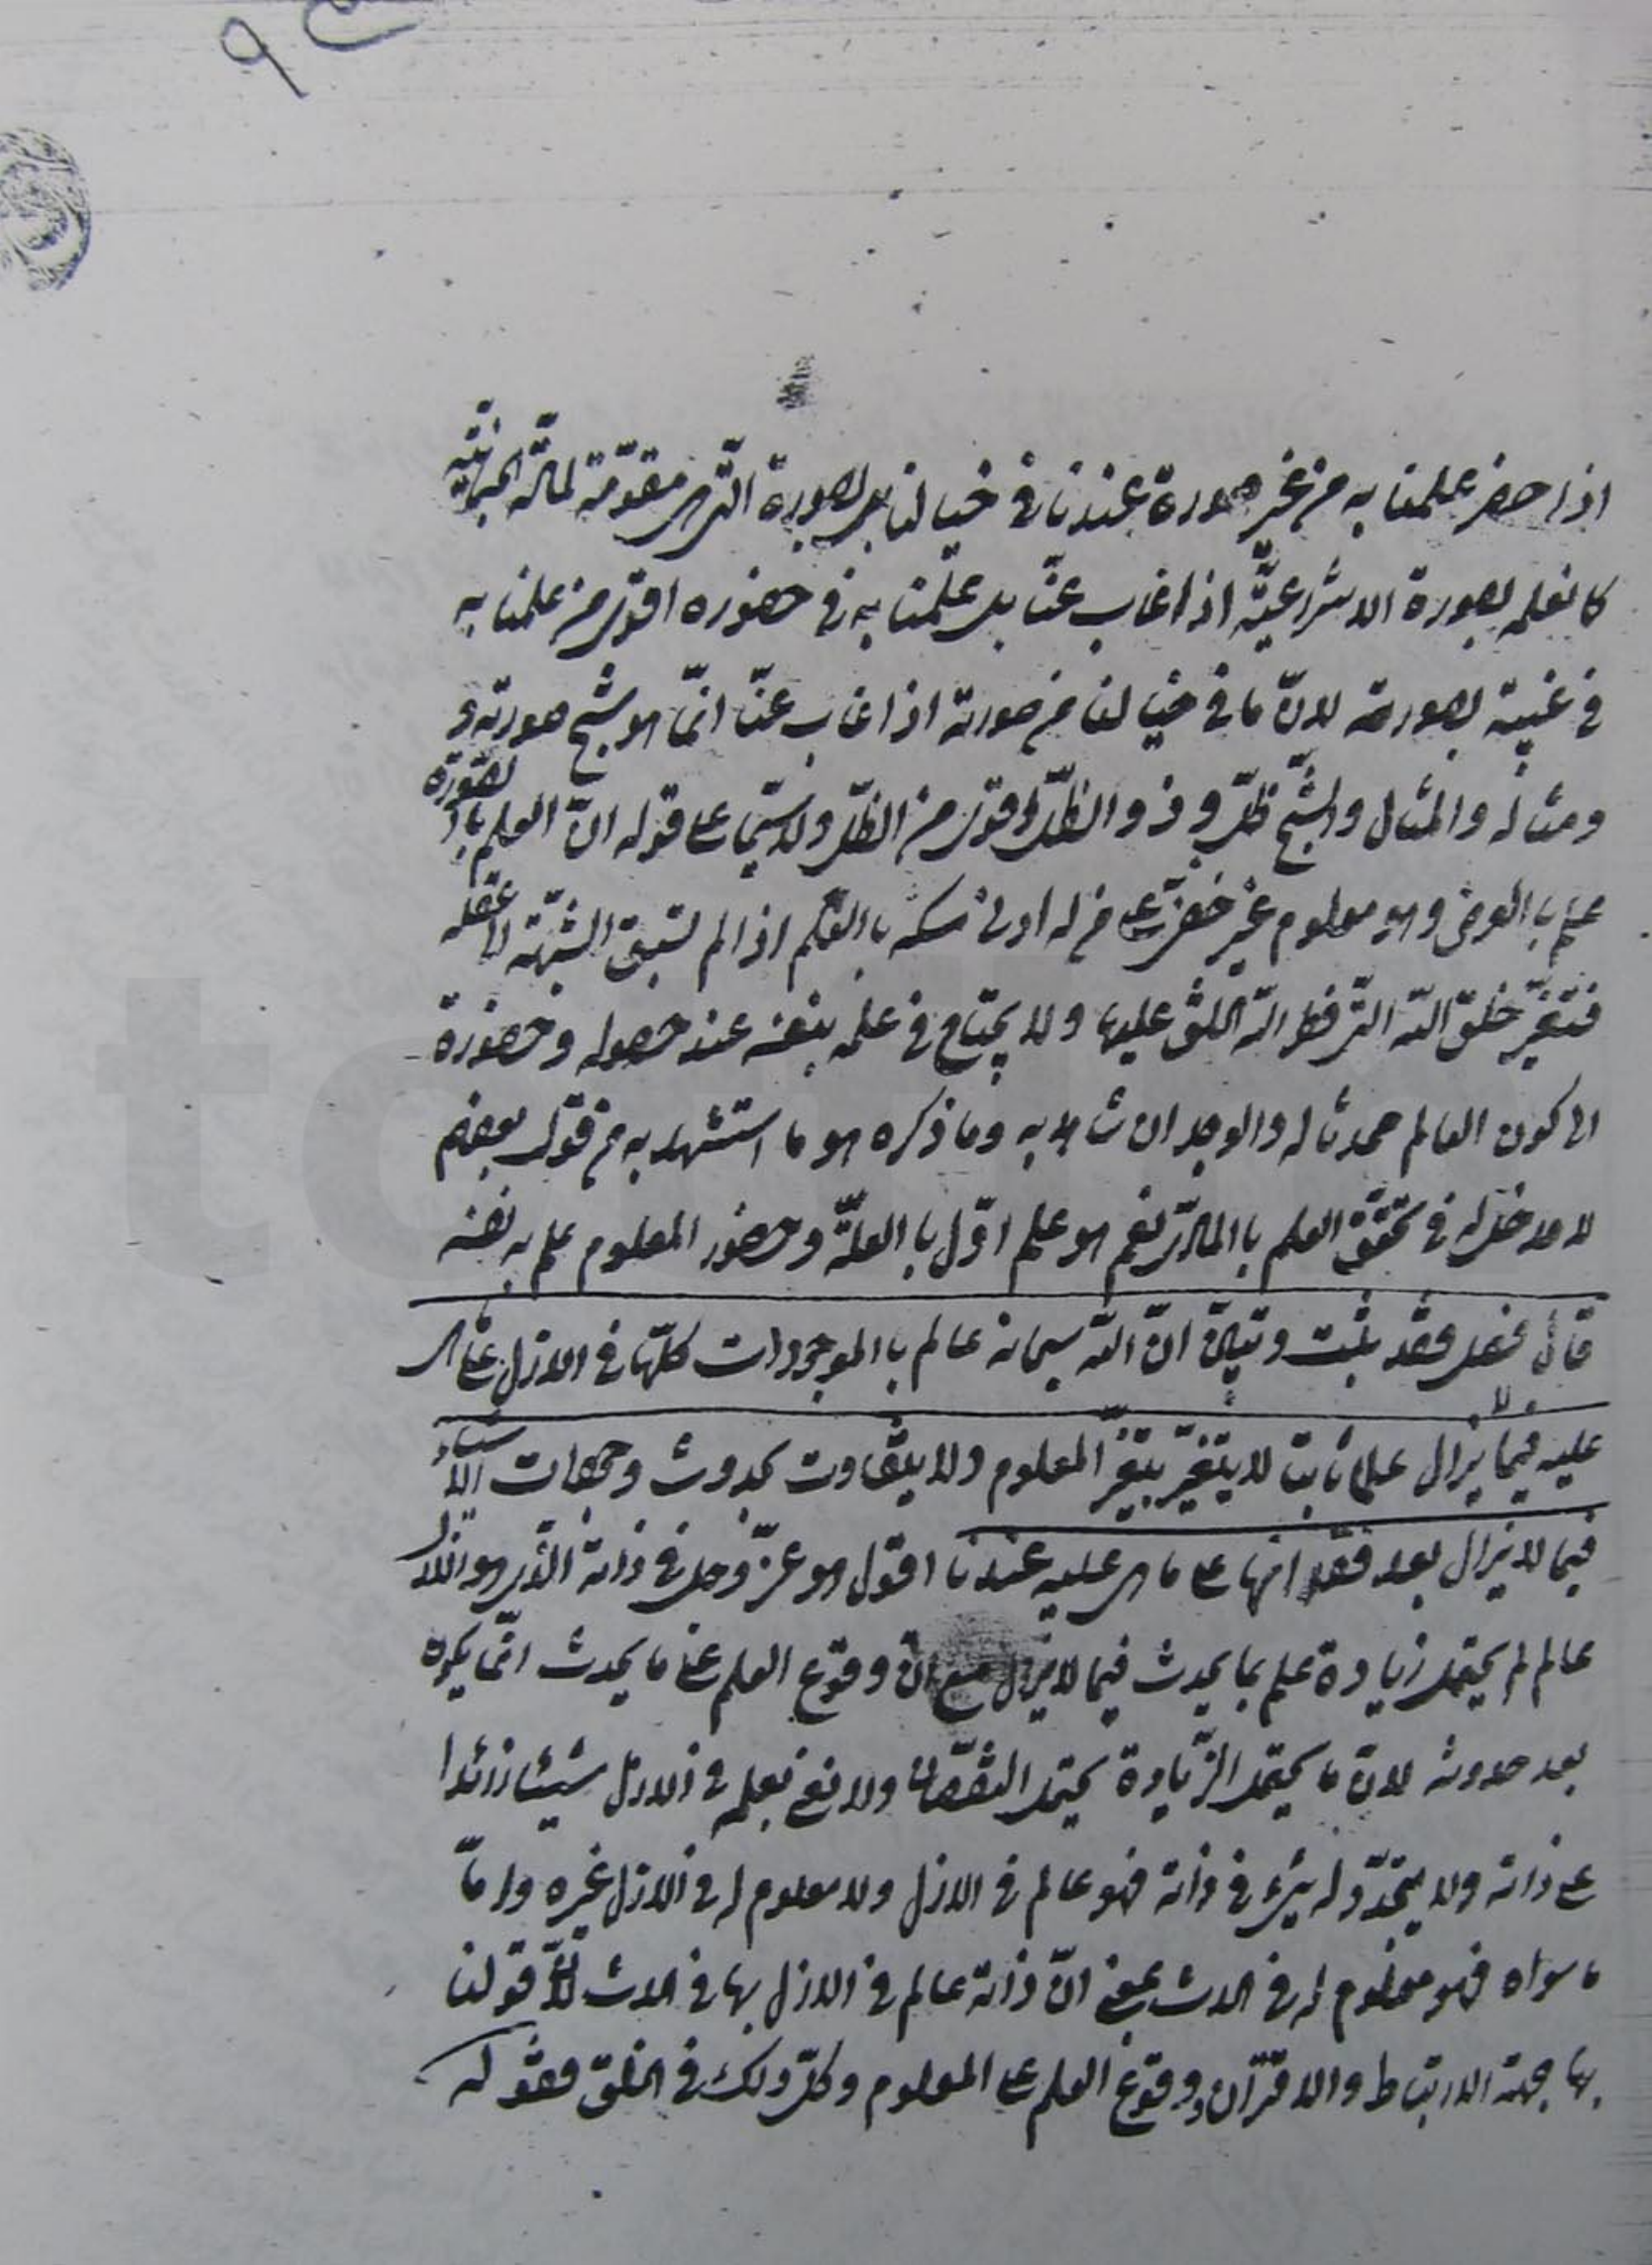 اذا حضر علمنا به من غير صورة عندنا في خيالنا بل بصورة التي هي مقومة لمادته الجسمانية
كما نعلمه بصورة الانتزاعية اذا غاب عنا بل علمنا به في حضوره اقوى من علمنا به
في غيبته بصورته لان ما في خيالنا من صورته اذا غاب عنا انما هو شبح صورته و
ومثاله والمثال والشبح ظل و ذو الظل اقوى من الظل ولا سيما على قوله ان العلم بالصورة
علم بالعرض وهو معلوم غير خفي على من له ادنى مسكة بالعلم اذا لم تسبق الشبهة الى عقله
فتغير خلق الله التي فطر الله الخلق عليها ولا يحتاج في علمه بنفسه عند حصوله وحضوره
الى كون العالم محدثا له والوجدان شاهد به وما ذكره هو ما استشهد به من قول بعضهم
لا مدخل له في تحقق العلم بالمادي نعم هو علم اول بالعلة وحضور المعلوم علم به نفسه
قال فصل فقد ثبت وتبين ان الله سبحانه عالم بالموجودات كلها في الازل على ما هي
عليه فيما لا يزال علما ثابتا لا يتغير بتغير المعلوم ولا يتفاوت بحدوث وجهات الاشياء
فيما لا يزال بعد فقد انها على ما هي عليه عندنا اقول هو عز وجل في ذاته الذي هو الازل
عالم لم يحتمل زيادة علم بما يحدث فيما لا يزال مع ان وقوع العلم على ما يحدث انما يكون
بعد حدوثه لان ما يحتمل الزيادة يحتمل النقصان ولا نعني بعلمه في الازل شيئا زائدا
على ذاته ولا يتجدد له شيء في ذاته فهو عالم في الازل ولا معلوم له في الازل غيره واما
ما سواه فهو معلوم له في الحدث بمعنى ان ذاته عالم في الازل بها في الحدث لان قولنا
بها جهة الارتباط والاقتران ووقوع العلم على المعلوم وكل ذلك في الخلق فقوله